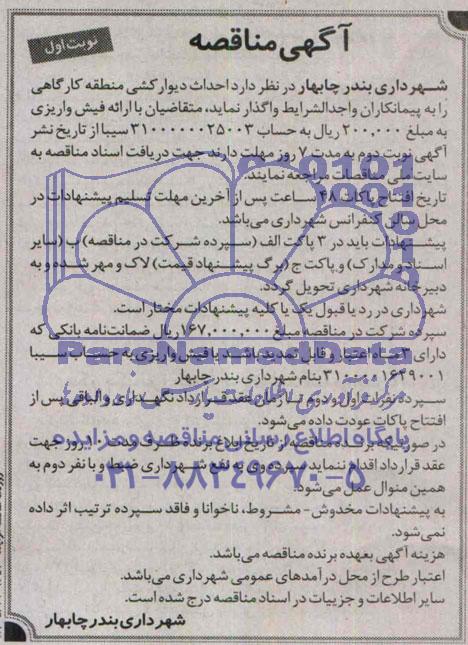 آگهی مناقصه
نوبت اول
شهرداری بندر چابهار در نظر دارد احداث دیوارکشی منطقه کارگاهی
را به پیمانکاران واجدالشرایط واگذار نماید، متقاضیان با ارائه فیش واریزی
به مبلغ ۲۰۰,۰۰۰ ریال به حساب ۳۱۰۰۰۰۰۰۲۵۰۰۳ سیبا از تاریخ نشر
آگهی نوبت دوم به مدت ۷ روز مهلت دارند جهت دریافت اسناد مناقصه به
سایت ملی مناقصات مراجعه نمایند.
تاریخ افتتاح پاکات ۴۸ ساعت پس از آخرین مهلت تسلیم پیشنهادات در
محل سالن کنفرانس شهرداری می‌باشد.
پیشنهادات باید در ۳ پاکت الف (سپرده شرکت در مناقصه) ب (سایر
اسناد و مدارک) و پاکت ج (برگ پیشنهاد قیمت) لاک و مهر شده و به
دبیرخانه شهرداری تحویل گردد.
شهرداری در رد یا قبول یک یا کلیه پیشنهادات مختار است.
سپرده شرکت در مناقصه مبلغ ۱۶۷,۰۰۰,۰۰۰ ریال ضمانت‌نامه بانکی که
دارای ماه اعتبار و قابل تمدید باشد یا فیش واریزی به حساب سیبا
بنام شهرداری بندر چابهار
سپرده نفرات اول و دوم تا زمان عقد قرارداد نگهداری و الباقی پس از
افتتاح پاکات عودت داده می‌شود.
در صورتیکه برنده مناقصه از تاریخ ابلاغ برنده ظرف مدت ۱۰ روز جهت
عقد قرارداد اقدام ننماید سپرده وی به نفع شهرداری ضبط و با نفر دوم به
همین منوال عمل می‌شود.
به پیشنهادات مخدوش - مشروط، ناخوانا و فاقد سپرده ترتیب اثر داده
نمی‌شود.
هزینه آگهی بعهده برنده مناقصه می‌باشد.
اعتبار طرح از محل درآمدهای عمومی شهرداری می‌باشد.
سایر اطلاعات و جزییات در اسناد مناقصه درج شده است.
شهرداری بندر چابهار
ParsNamadData
پایگاه اطلاع رسانی مناقصه و مزایده
۰۲۱-۸۸۳۴۹۶۷۰-۵